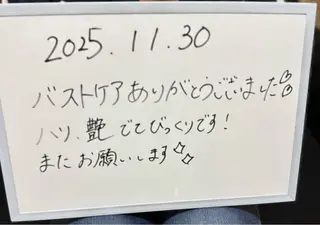 2025.11.30
バストケアありがとうございました♡
ハリ、艶でてびっくりです!
またお願いします✧